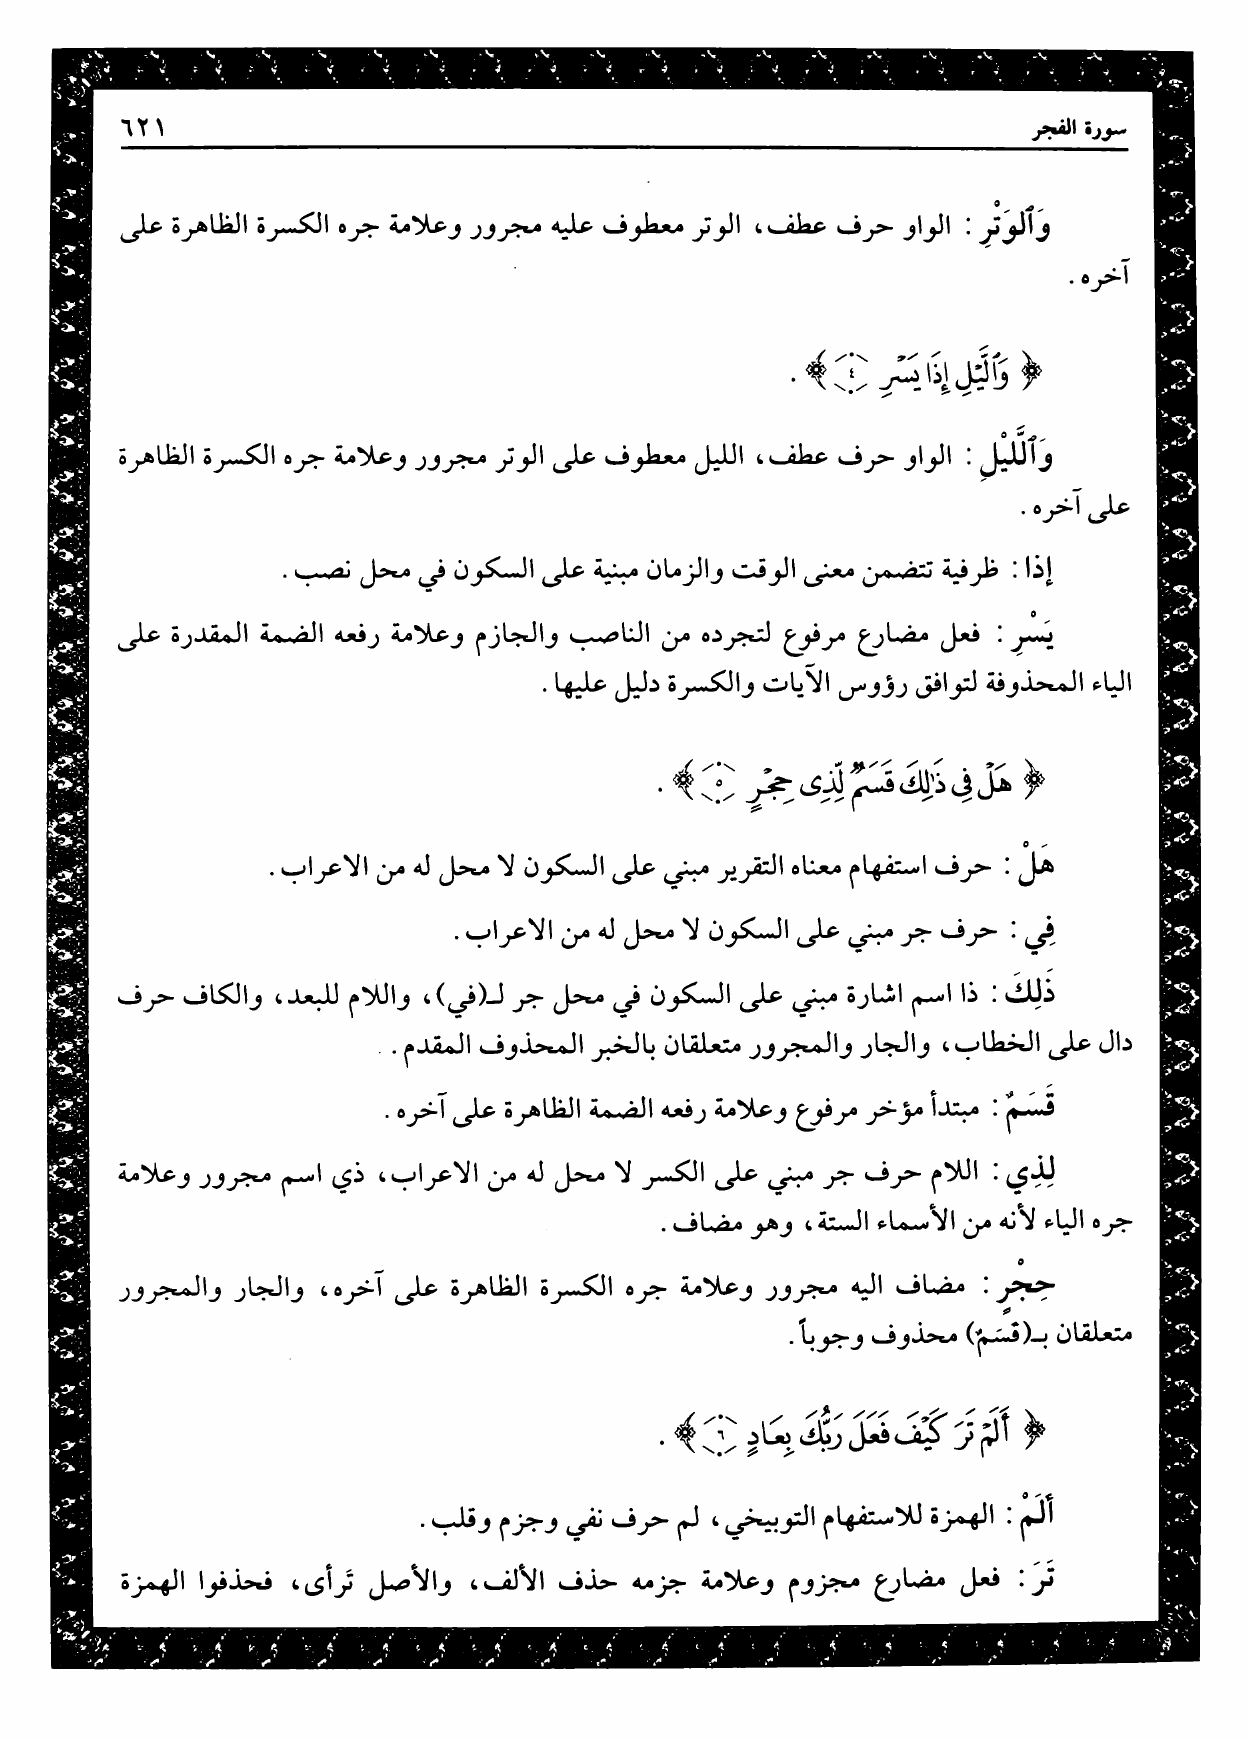 سورة الفجر
٦٢١
وَٱلوَتْرِ : الواو حرف عطف، الوتر معطوف عليه مجرور وعلامة جره الكسرة الظاهرة على
آخره .
﴿ وَٱلَّيْلِ إِذَا يَسْرِ ٤ ﴾ .
وَٱللَّيْلِ : الواو حرف عطف، الليل معطوف على الوتر مجرور وعلامة جره الكسرة الظاهرة
على آخره .
إذا : ظرفية تتضمن معنى الوقت والزمان مبنية على السكون في محل نصب .
يَسْرِ : فعل مضارع مرفوع لتجرده من الناصب والجازم وعلامة رفعه الضمة المقدرة على
الياء المحذوفة لتوافق رؤوس الآيات والكسرة دليل عليها .
﴿ هَلْ فِى ذَٰلِكَ قَسَمٌ لِّذِى حِجْرٍ ٥ ﴾ .
هَلْ : حرف استفهام معناه التقرير مبني على السكون لا محل له من الاعراب .
فِي : حرف جر مبني على السكون لا محل له من الاعراب .
ذَلِكَ : ذا اسم اشارة مبني على السكون في محل جر لـ(في)، واللام للبعد، والكاف حرف
دال على الخطاب، والجار والمجرور متعلقان بالخبر المحذوف المقدم .
قَسَمٌ : مبتدأ مؤخر مرفوع وعلامة رفعه الضمة الظاهرة على آخره .
لِذِي : اللام حرف جر مبني على الكسر لا محل له من الاعراب، ذي اسم مجرور وعلامة
جره الياء لأنه من الأسماء الستة، وهو مضاف .
حِجْرٍ : مضاف اليه مجرور وعلامة جره الكسرة الظاهرة على آخره، والجار والمجرور
متعلقان بـ(قسَمٌ) محذوف وجوباً .
﴿ أَلَمْ تَرَ كَيْفَ فَعَلَ رَبُّكَ بِعَادٍ ٦ ﴾ .
ألَمْ : الهمزة للاستفهام التوبيخي، لم حرف نفي وجزم وقلب .
تَرَ : فعل مضارع مجزوم وعلامة جزمه حذف الألف، والأصل تَرأى، فحذفوا الهمزة